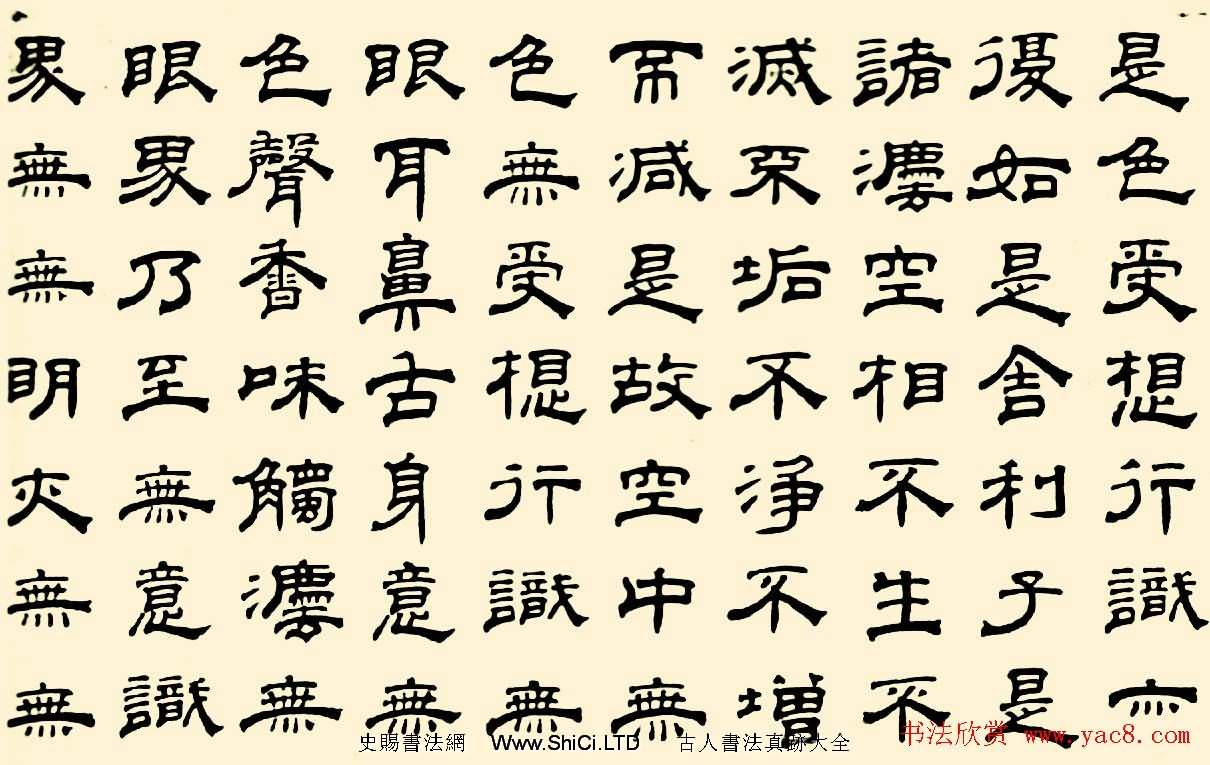 是色受想行識亦
復如是舍利子是
諸灋空相不生不
滅不垢不淨不增
不減是故空中無
色無受想行識無
眼耳鼻舌身意無
色聲香味觸灋無
眼界乃至無意識
界無無明亦無無
史賜書法網 Www.ShiCi.LTD 古人書法真跡大全
书法欣赏 www.yac8.com